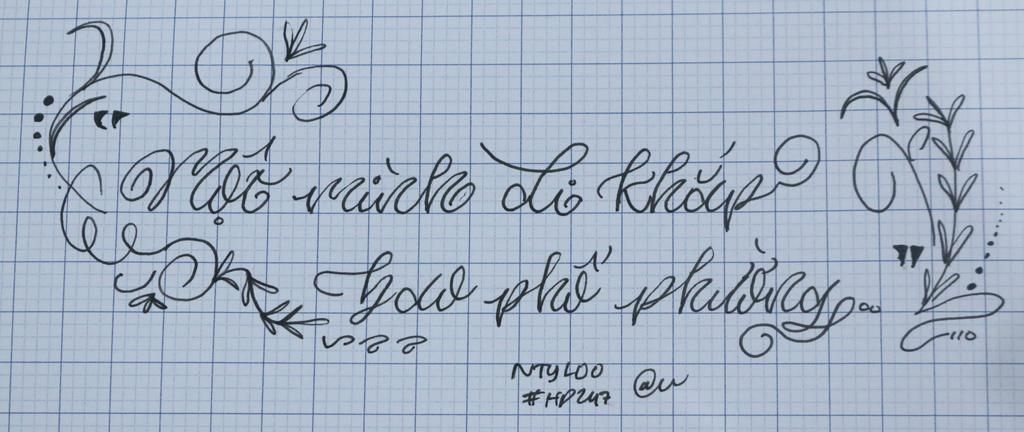 "Một mình đi khắp
bao phố phường...
NTYLOO
#HP247 @w